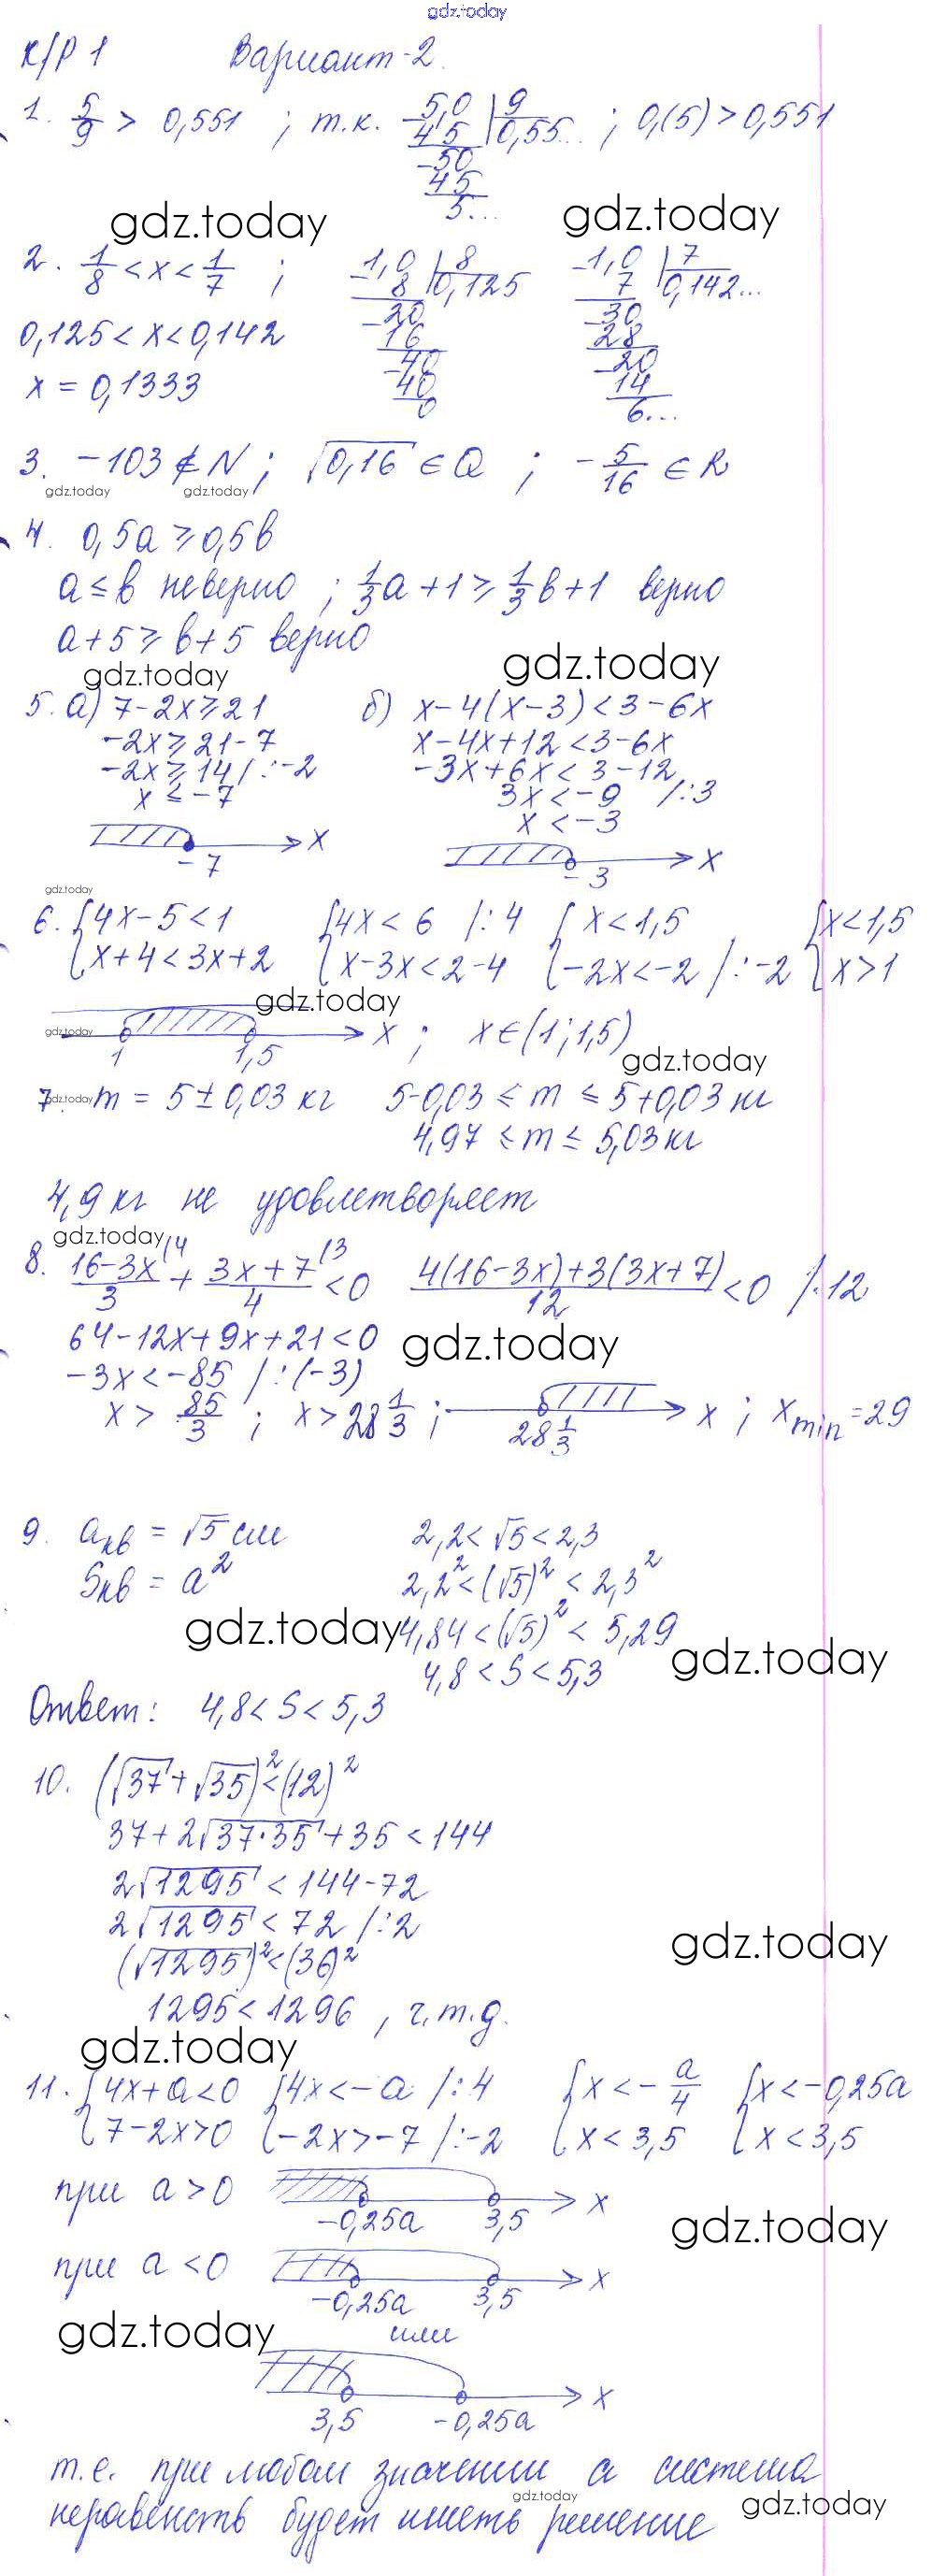 gdz.today
К/Р 1 Вариант-2.
1. 5/9 > 0,551 ; т.к. 5,0 | 9 ; 0,(5) > 0,551
-45 | 0,55...
-50
45
5...
gdz.today gdz.today
2. 1/8 < x < 1/7 ; -1,0 | 8 -1,0 | 7
8 | 0,125 7 | 0,142...
0,125 < x < 0,142 -20 -30
16 28
-40 -20
x = 0,1333 40 14
0 6...
3. -103 ∉ N ; √0,16 ∈ Q ; -5/16 ∈ R
gdz.today gdz.today
4. 0,5a ⩾ 0,5b
a ≤ b неверно ; 1/3a + 1 ⩾ 1/3b + 1 верно
a + 5 ⩾ b + 5 верно
gdz.today gdz.today
5. а) 7 - 2x ⩾ 21 б) x - 4(x - 3) < 3 - 6x
-2x ⩾ 21 - 7 x - 4x + 12 < 3 - 6x
-2x ⩾ 14 /: -2 -3x + 6x < 3 - 12
x ≤ -7 3x < -9 /:3
x < -3
x
-7 x
-3
gdz.today
6. { 4x - 5 < 1 { 4x < 6 /:4 { x < 1,5 { x < 1,5
{ x + 4 < 3x + 2 { x - 3x < 2 - 4 { -2x < -2 /: -2 { x > 1
gdz.today
gdz.today x ; x ∈ (1; 1,5)
1 1,5
gdz.today
7. gdz.today m = 5 ± 0,03 кг 5 - 0,03 ≤ m ≤ 5 + 0,03 кг
4,97 ≤ m ≤ 5,03 кг
4,9 кг не удовлетворяет
gdz.today
8. 16-3x/3 (4 + 3x+7/4 (3 < 0 4(16-3x)+3(3x+7)/12 < 0 /·12
64 - 12x + 9x + 21 < 0 gdz.today
-3x < -85 /:(-3)
x > 85/3 ; x > 28 1/3 ; 28 1/3 x ; xmin = 29
9. aкв = √5 см 2,2 < √5 < 2,3
Sкв = a² 2,2² < (√5)² < 2,3²
gdz.today 4,84 < (√5)² < 5,29
gdz.today
4,8 < S < 5,3
Ответ: 4,8 < S < 5,3
10. (√37 + √35)² < (12)²
37 + 2√37·35 + 35 < 144
2√1295 < 144 - 72
2√1295 < 72 /:2
gdz.today
(√1295)² < (36)²
1295 < 1296 , ч.т.д.
gdz.today
11. { 4x + a < 0 { 4x < -a /:4 { x < -a/4 { x < -0,25a
{ 7 - 2x > 0 { -2x > -7 /: -2 { x < 3,5 { x < 3,5
при a > 0 x
-0,25a 3,5
gdz.today
при a < 0 x
-0,25a 3,5
gdz.today или
x
3,5 -0,25a
т.е. при любом значении a система
gdz.today gdz.today
неравенств будет иметь решение